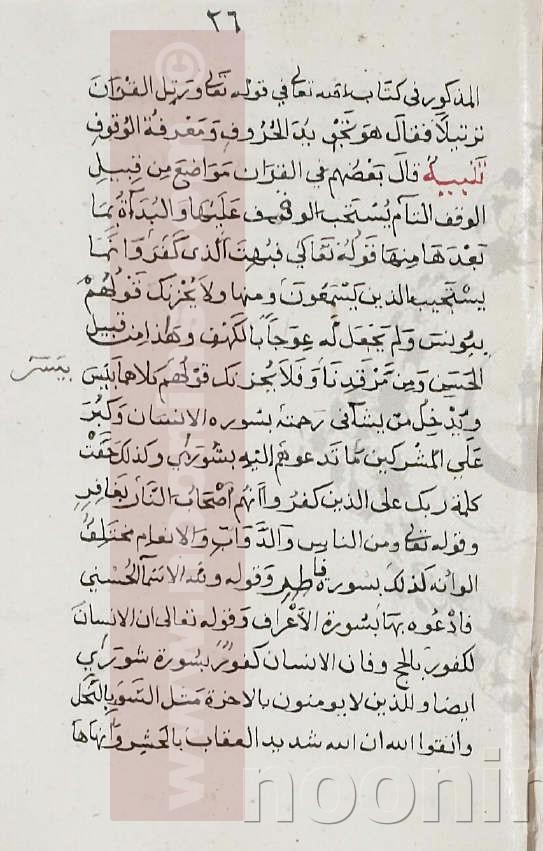 ٢٦
المذكور في كتاب الله تعالى في قوله تعالى ورتل القران
ترتيلا فقال هو تجويد الحروف ومعرفة الوقوف
تنبيه قال بعضهم في القران مواضع من قبيل
الوقف التام يستحب الوقف عليها والبداءة بما
بعدها منها قوله تعالى فبهت الذي كفر وانما
يستجيب الذين يسمعون ومنها ولا يحزنك قولهم
بيونس ولم يجعل له عوجا بالكهف وهذا من قبيل
الحسن ومن مرقدنا وفلا يحزنك قولهم كلاها بيس
ويدخل من يشا في رحمته بسوره الانسان وكبر
على المشركين ما تدعوهم اليه بشورى وكذلك حقت
كلمة ربك على الذين كفروا انهم اصحاب النار بغافر
وقوله تعالى ومن الناس والدواب والانعام مختلف
الوانه كذلك بسورة فاطر وقوله ولله الاسما الحسنى
فادعوه بها بسورة الاعراف وقوله تعالى ان الانسان
لكفور بالحج وفان الانسان كفور بسورة شورى
ايضا وللذين لا يومنون بالاخرة مثل السوء بالنحل
واتقوا الله ان الله شديد العقاب بالحشر وانهاها
www.noormags
noonin